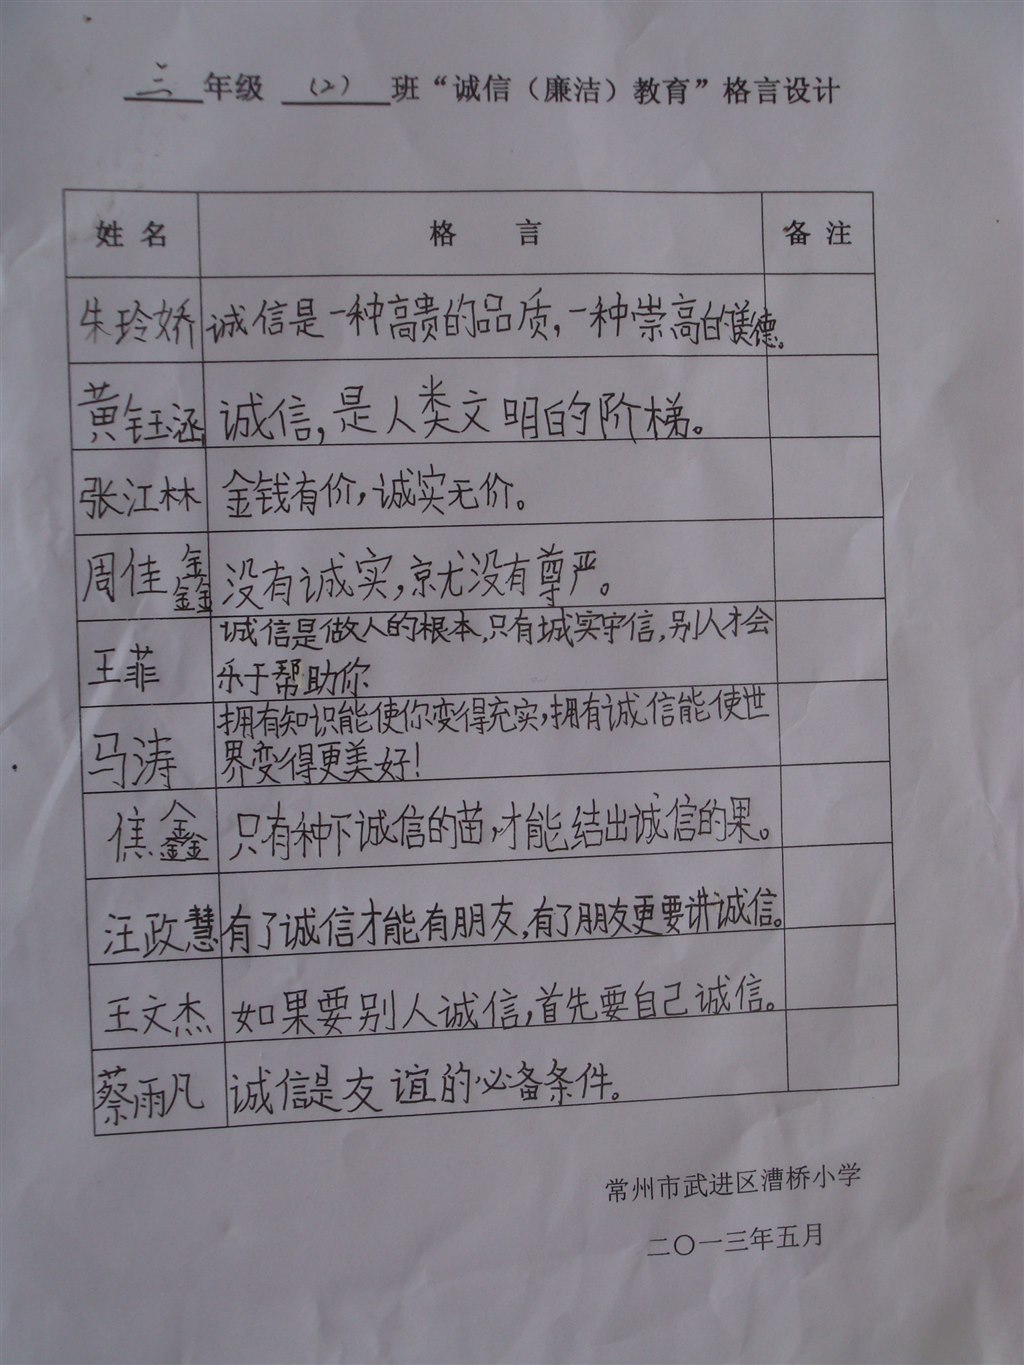 三年级 （2） 班“诚信（廉洁）教育”格言设计
姓 名 格 言 备 注
朱玲娇 诚信是一种高贵的品质，一种崇高的美德。
黄钰涵 诚信，是人类文明的阶梯。
张江林 金钱有价，诚实无价。
周佳鑫 没有诚实，就没有尊严。
王菲 诚信是做人的根本，只有诚实守信，别人才会
乐于帮助你
马涛 拥有知识能使你变得充实，拥有诚信能使世
界变得更美好！
焦鑫 只有种下诚信的苗，才能结出诚信的果。
汪政慧 有了诚信才能有朋友，有了朋友更要讲诚信。
王文杰 如果要别人诚信，首先要自己诚信。
蔡雨凡 诚信是友谊的必备条件。
常州市武进区漕桥小学
二〇一三年五月